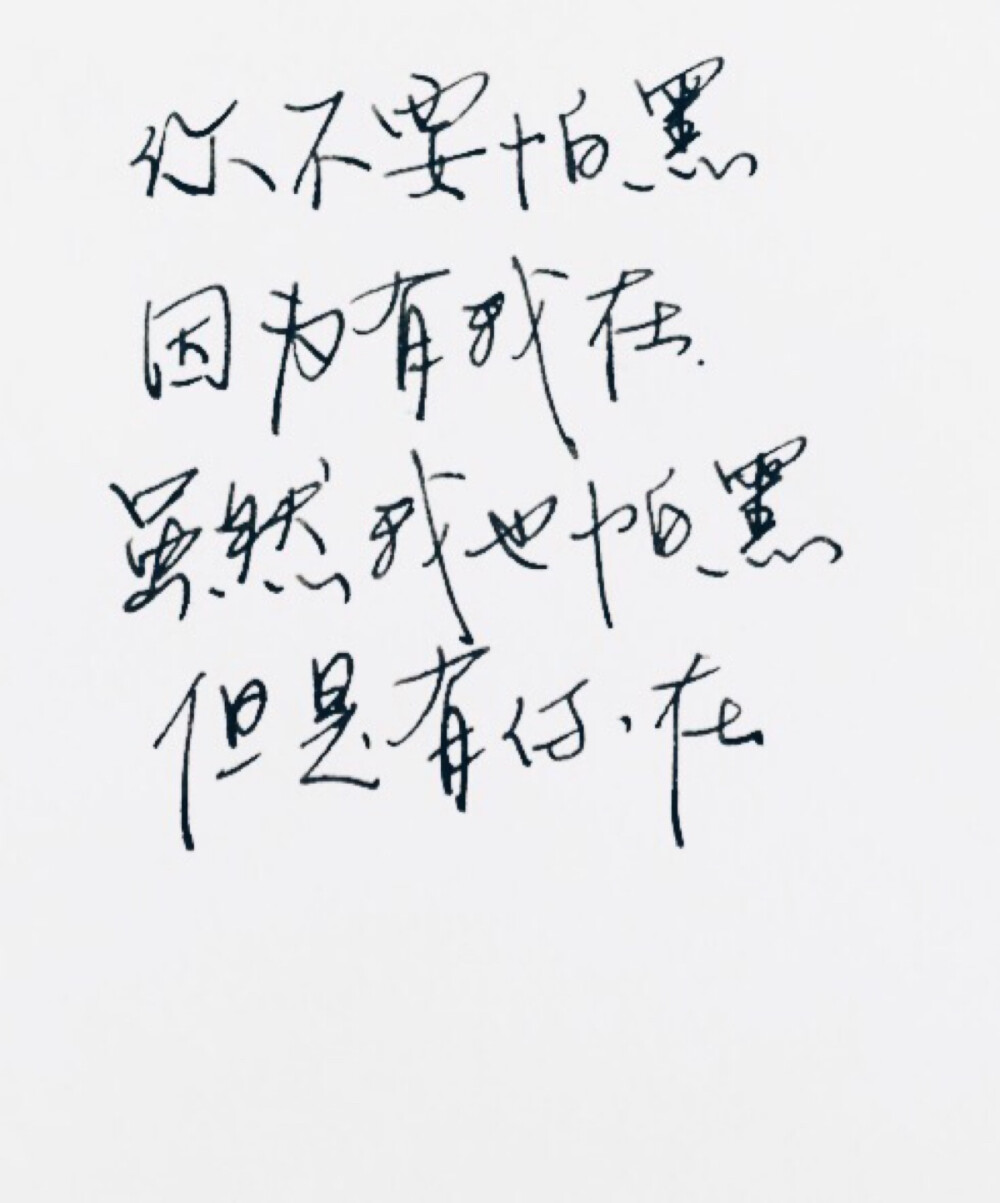 你不要怕黑
因为有我在.
虽然我也怕黑
但是有你在